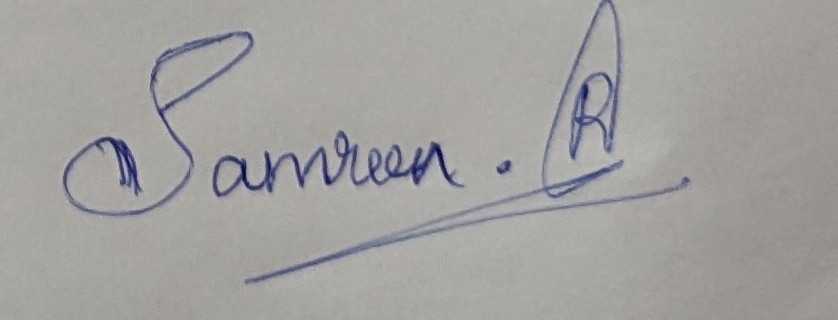 Samreen . R